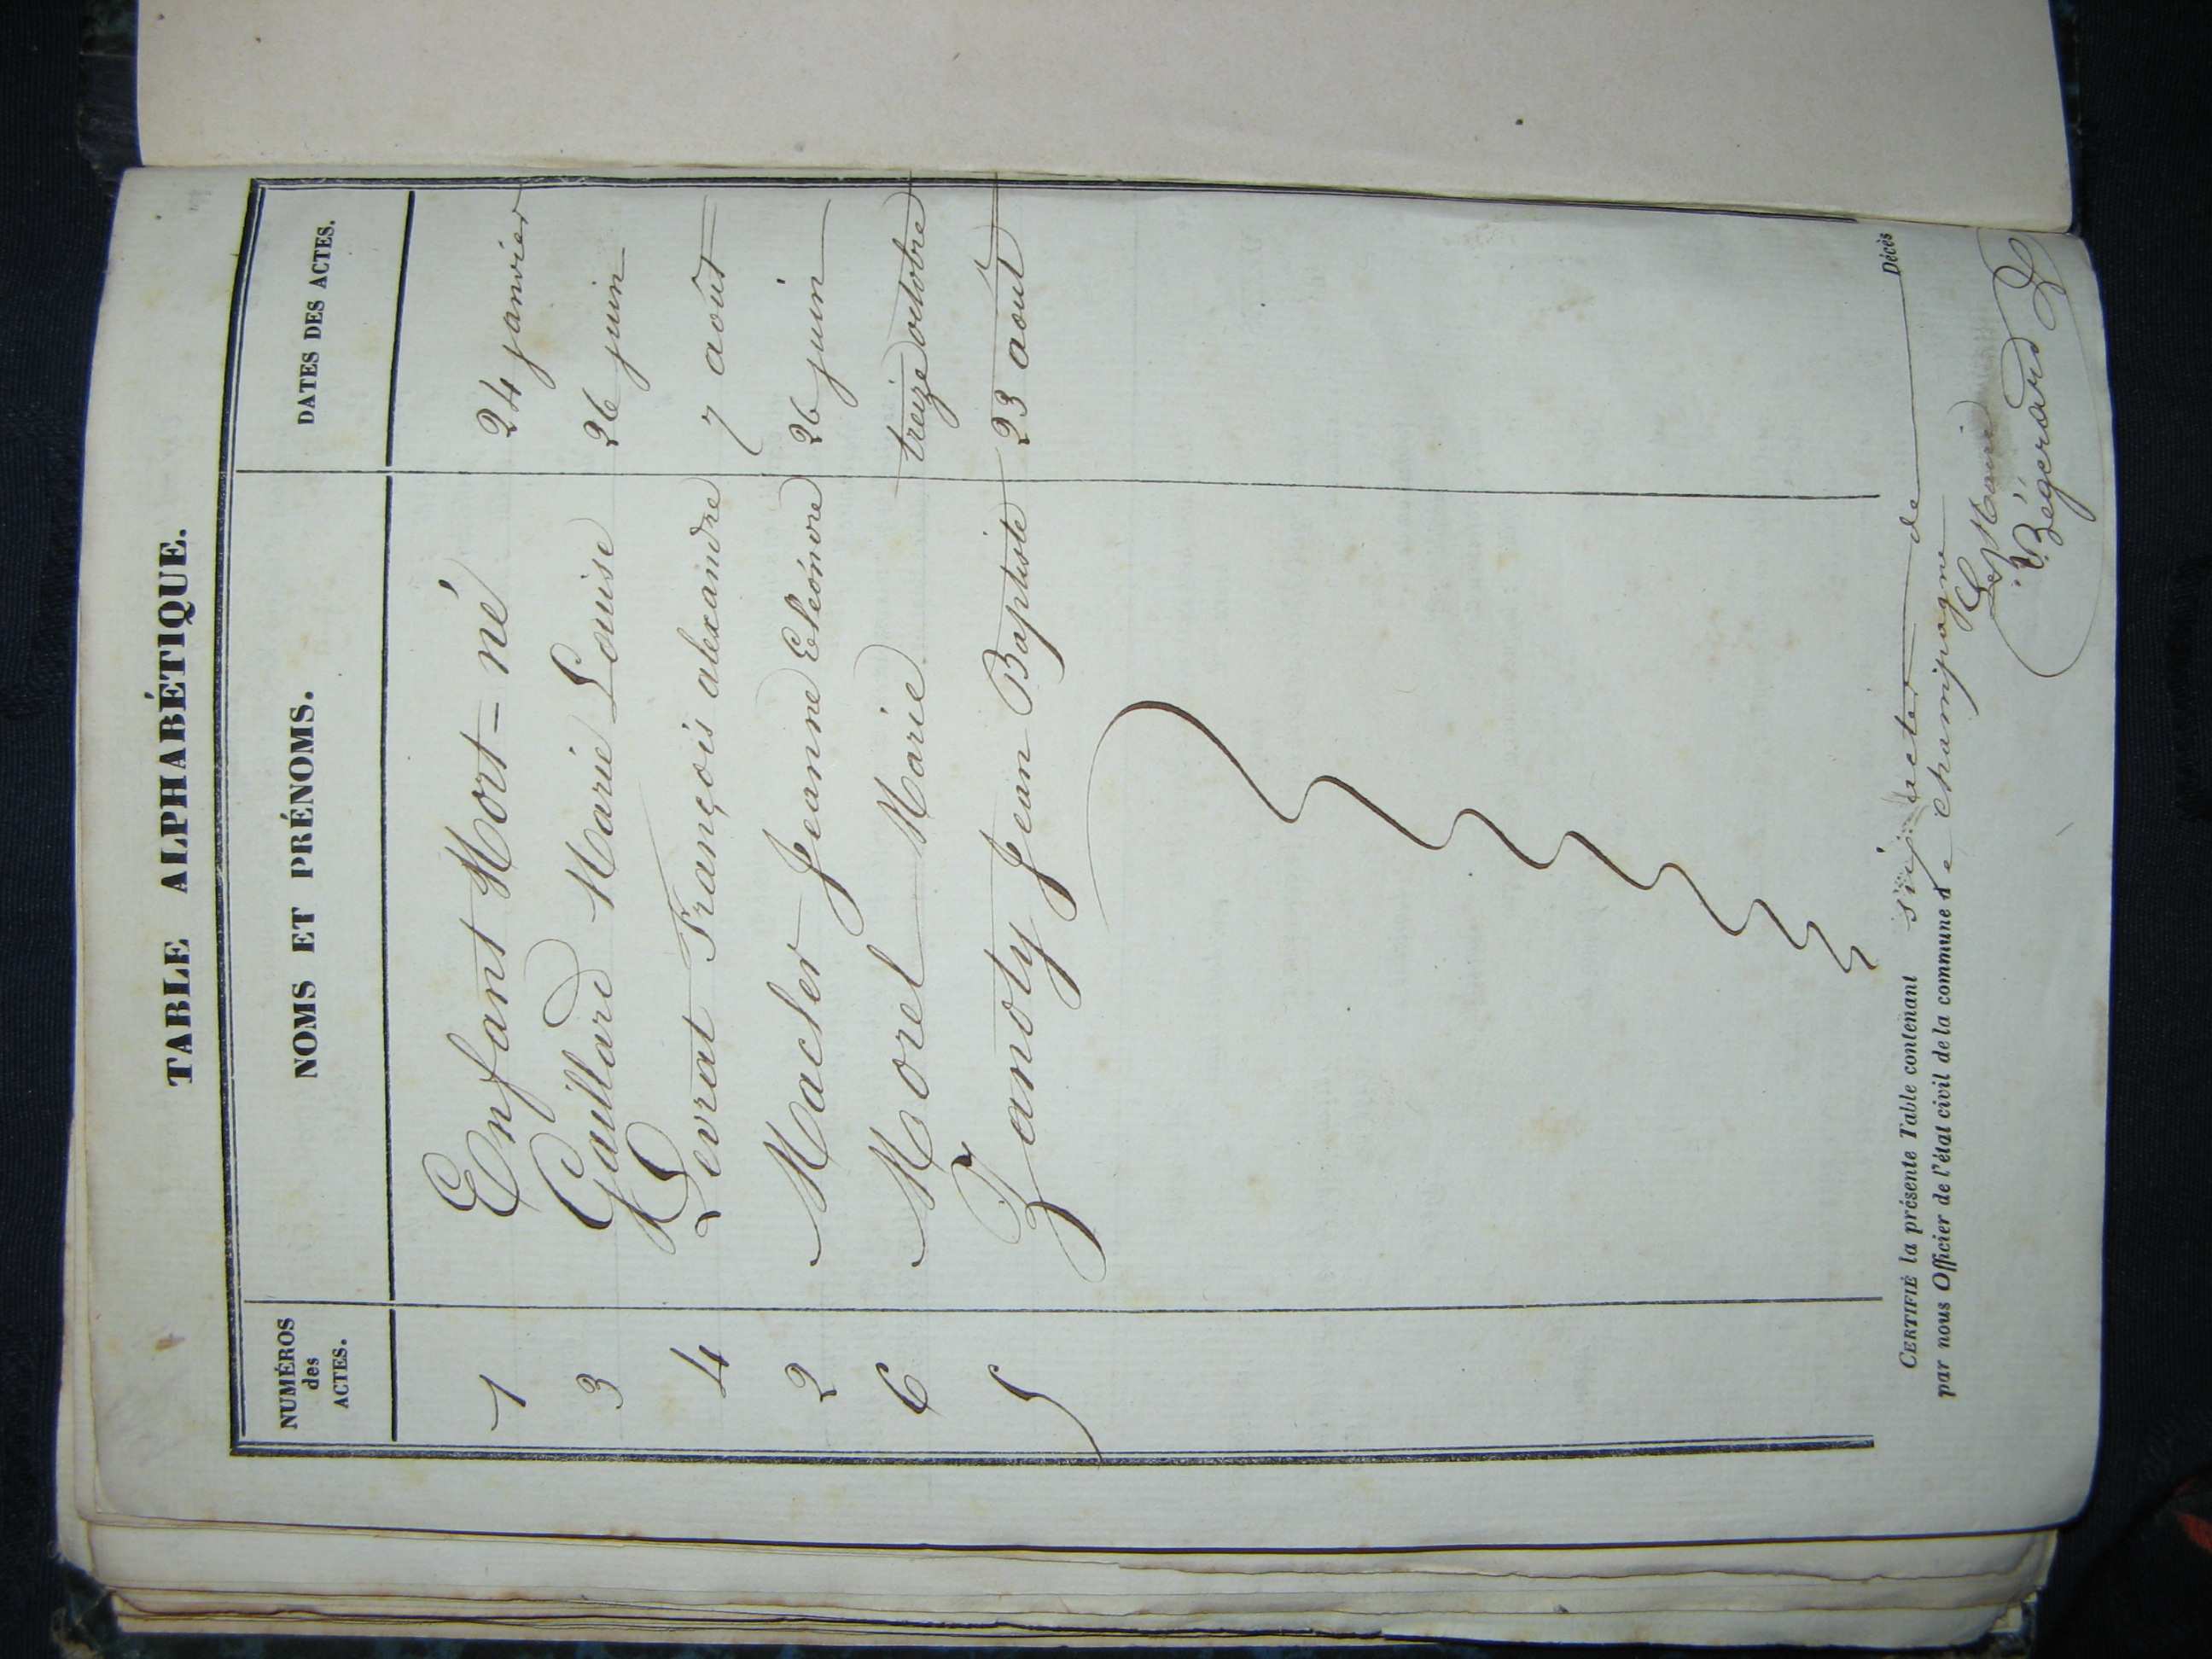 TABLE ALPHABÉTIQUE.
NUMÉROS des ACTES. NOMS ET PRÉNOMS. DATES DES ACTES.
1 Enfant Mort=né 24 janvier
3 Gaillard Marie Louise 26 juin
4 Levrat François alexandre 7 août
2 Macler Jeanne Eléonore 26 juin
6 Morel Marie treize octobre
5 Zanoty Jean Baptiste 23 aout
CERTIFIÉ la présente Table contenant six actes de Décès
par nous Officier de l'état civil de la commune de Champagne
Le Maire
Bégerard